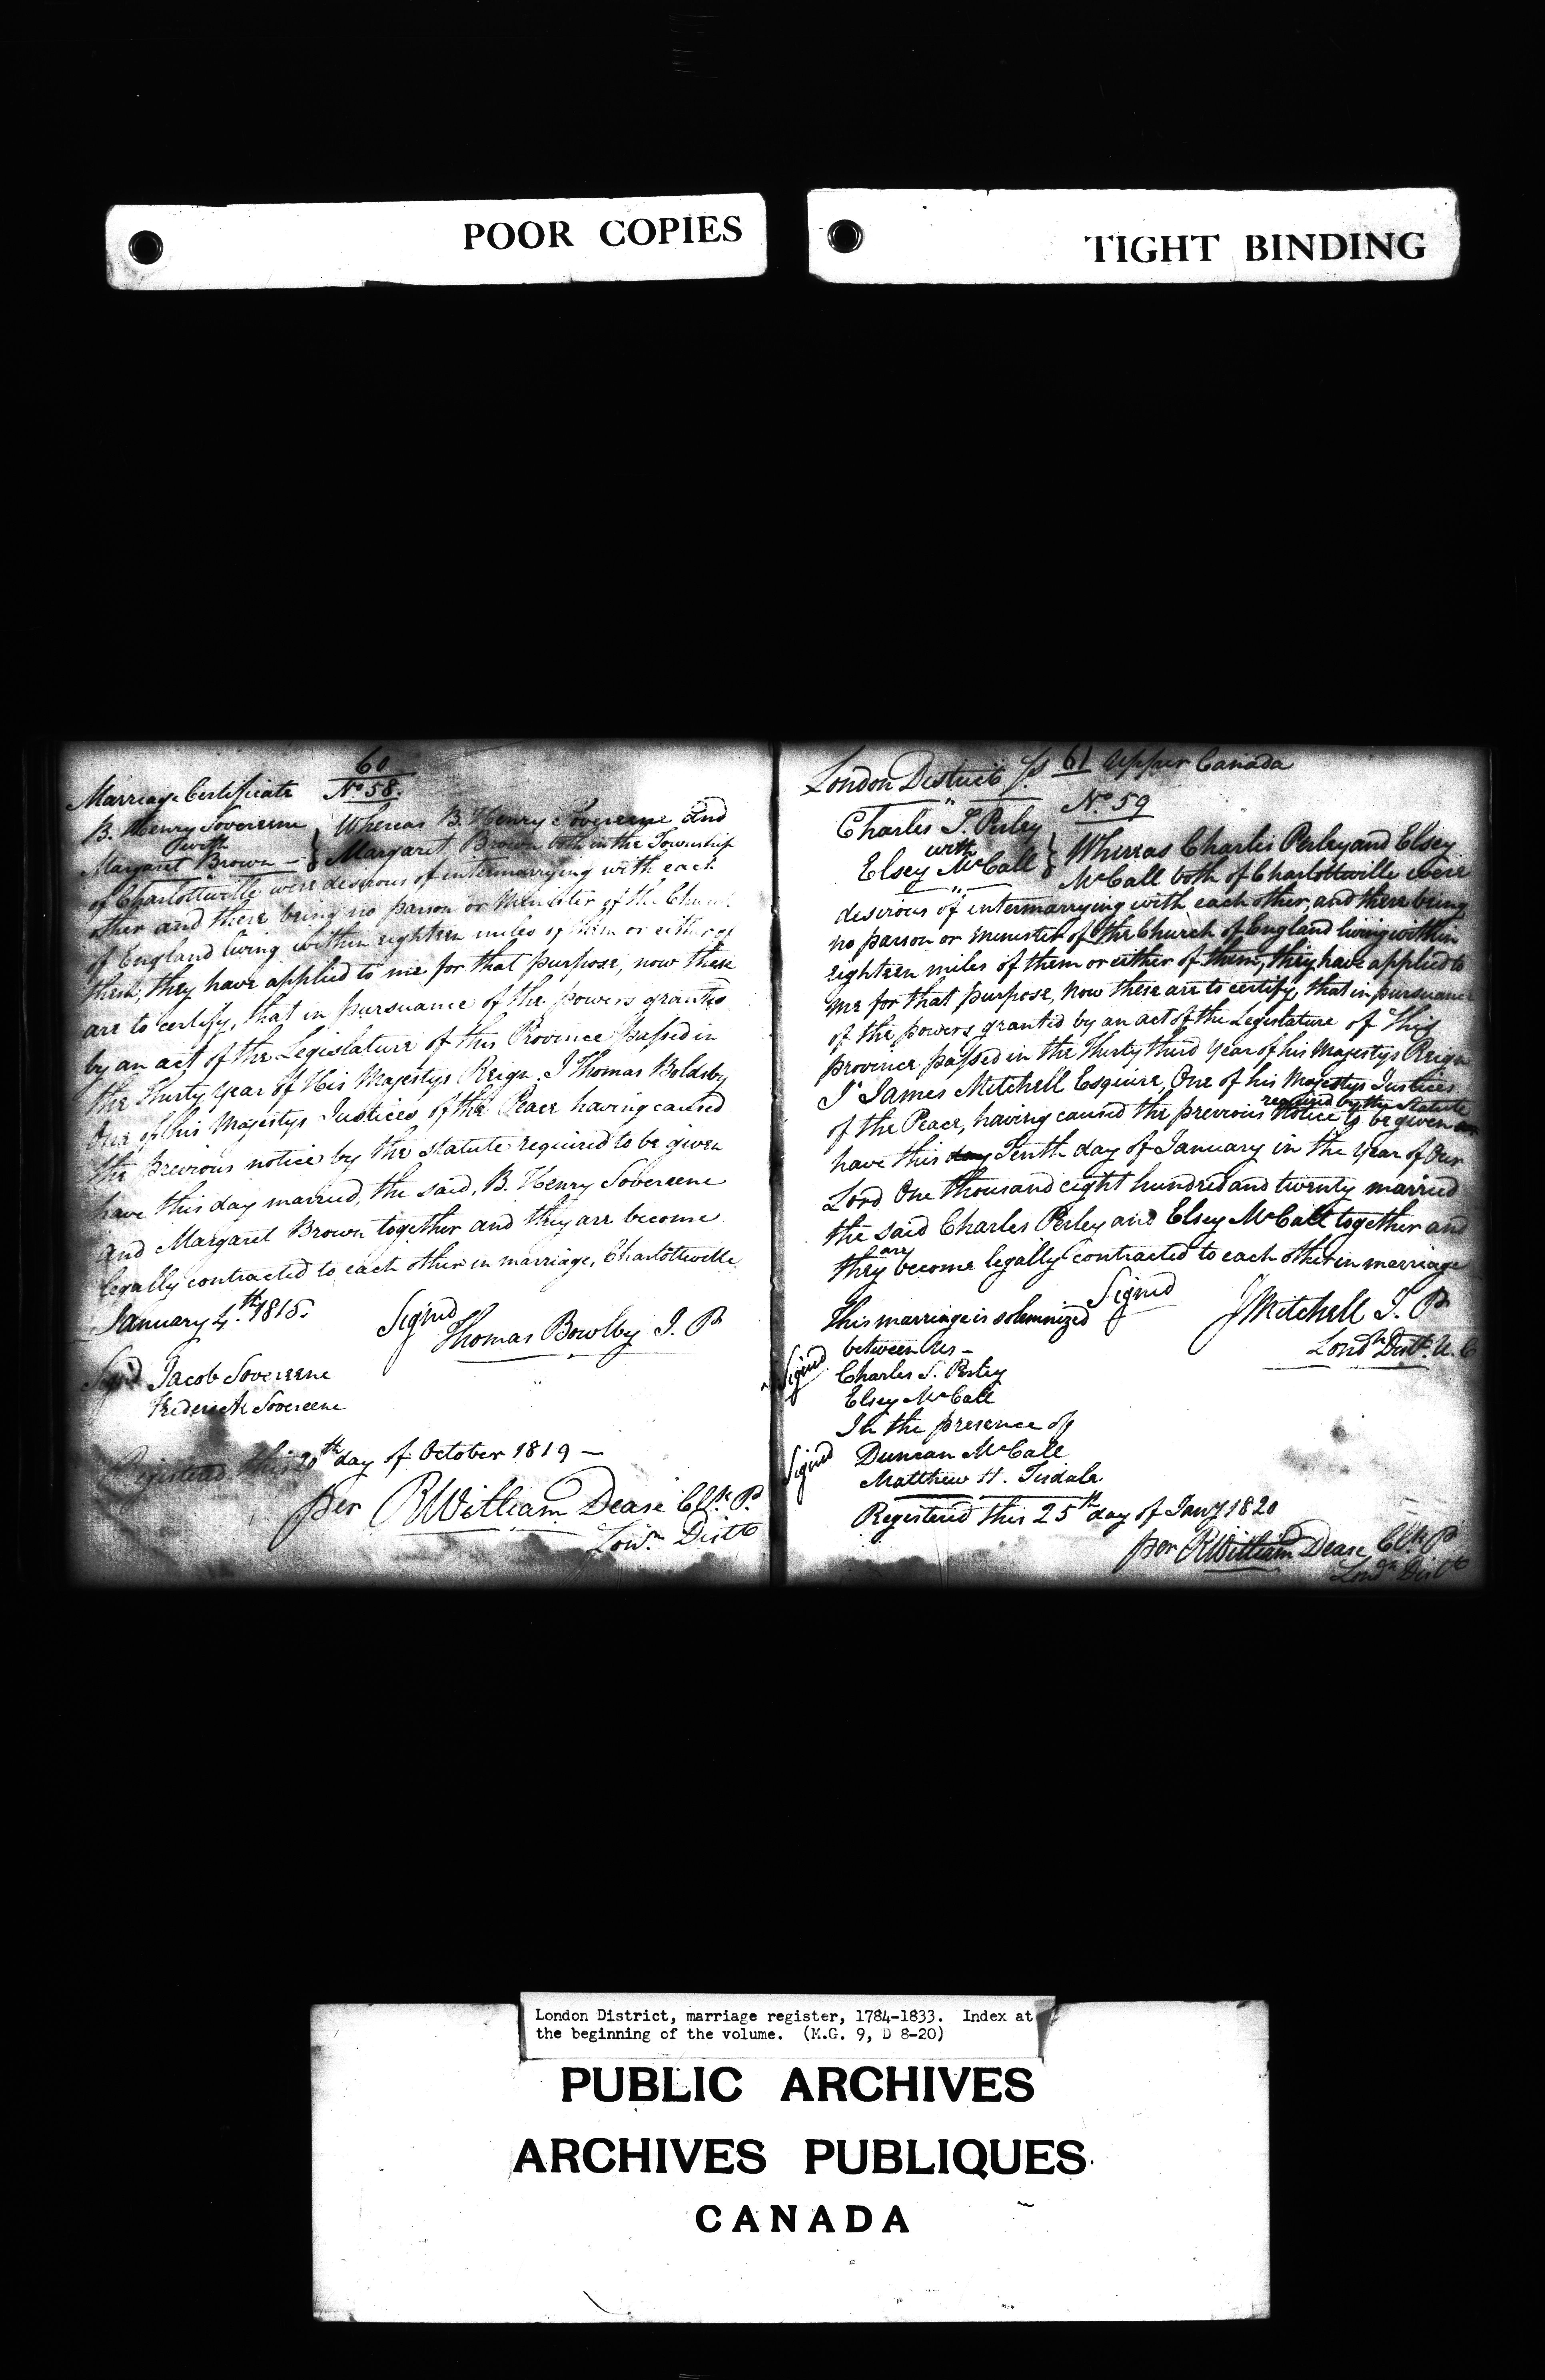 POOR COPIES
TIGHT BINDING
60
Marriage Certificate No 58.
B. Henry Sovereene
with
Margaret Brown —
Whereas B. Henry Sovereene and
Margaret Brown both in the Township
of Charlotteville were desirous of intermarrying with each
other and there being no parson or Minister of the Church
of England living within eighteen miles of them or either of
them, they have applied to me for that purpose, now these
are to certify, that in pursuance of the powers granted
by an act of the Legislature of this Province passed in
the Thirty Year of His Majestys Reign, I Thomas Boldsby
One of his Majestys Justices of the Peace having caused
the previous notice by the statute required to be given
have this day married, the said, B. Henry Sovereene
and Margaret Brown together and they are become
legally contracted to each other in marriage, Charlotteville
January 4th 1818.
Signed
Thomas Bowlby J. P
Signd Jacob Sovereene
Frederick Sovereene
Registered this 20th day of October 1819 —
per RWilliam Dease Clk P.
Lon. Dist
London District ss 61 Upper Canada
No 59
Charles S. Perley
with
Elsey McCall
Whereas Charles Perley and Elsey
McCall both of Charlotteville were
desirous of intermarrying with each other, and there being
no parson or Menister of the Church of England living within
eighteen miles of them or either of them, they have applied to
me for that purpose, Now these are to certify, that in pursuance
of the powers granted by an act of the Legislature of this
province passed in the Thirty third Year of his Majestys Reign
I James Mitchell Esquire, One of his Majestys Justices
required by the Statute
of the Peace, having caused the previous Notice to be given
have this day Tenth day of January in the Year of Our
Lord One thousand eight hundred and twenty married
the said Charles Perley and Elsey McCall together and
are
they become legally contracted to each other in marriage
Signed
JMitchell J. P
Lond Dist. U. C
This marriage is solemnized
between Us —
Signed Charles S. Perley
Elsey McCall
In the presence of
Signed Duncan McCall
Matthew H. Tisdale
Registered this 25th day of Jany 1820
per RWilliam Dease Clk P
Lond Dist
London District, marriage register, 1784-1833. Index at
the beginning of the volume. (M.G. 9, D 8-20)
PUBLIC ARCHIVES
ARCHIVES PUBLIQUES
CANADA